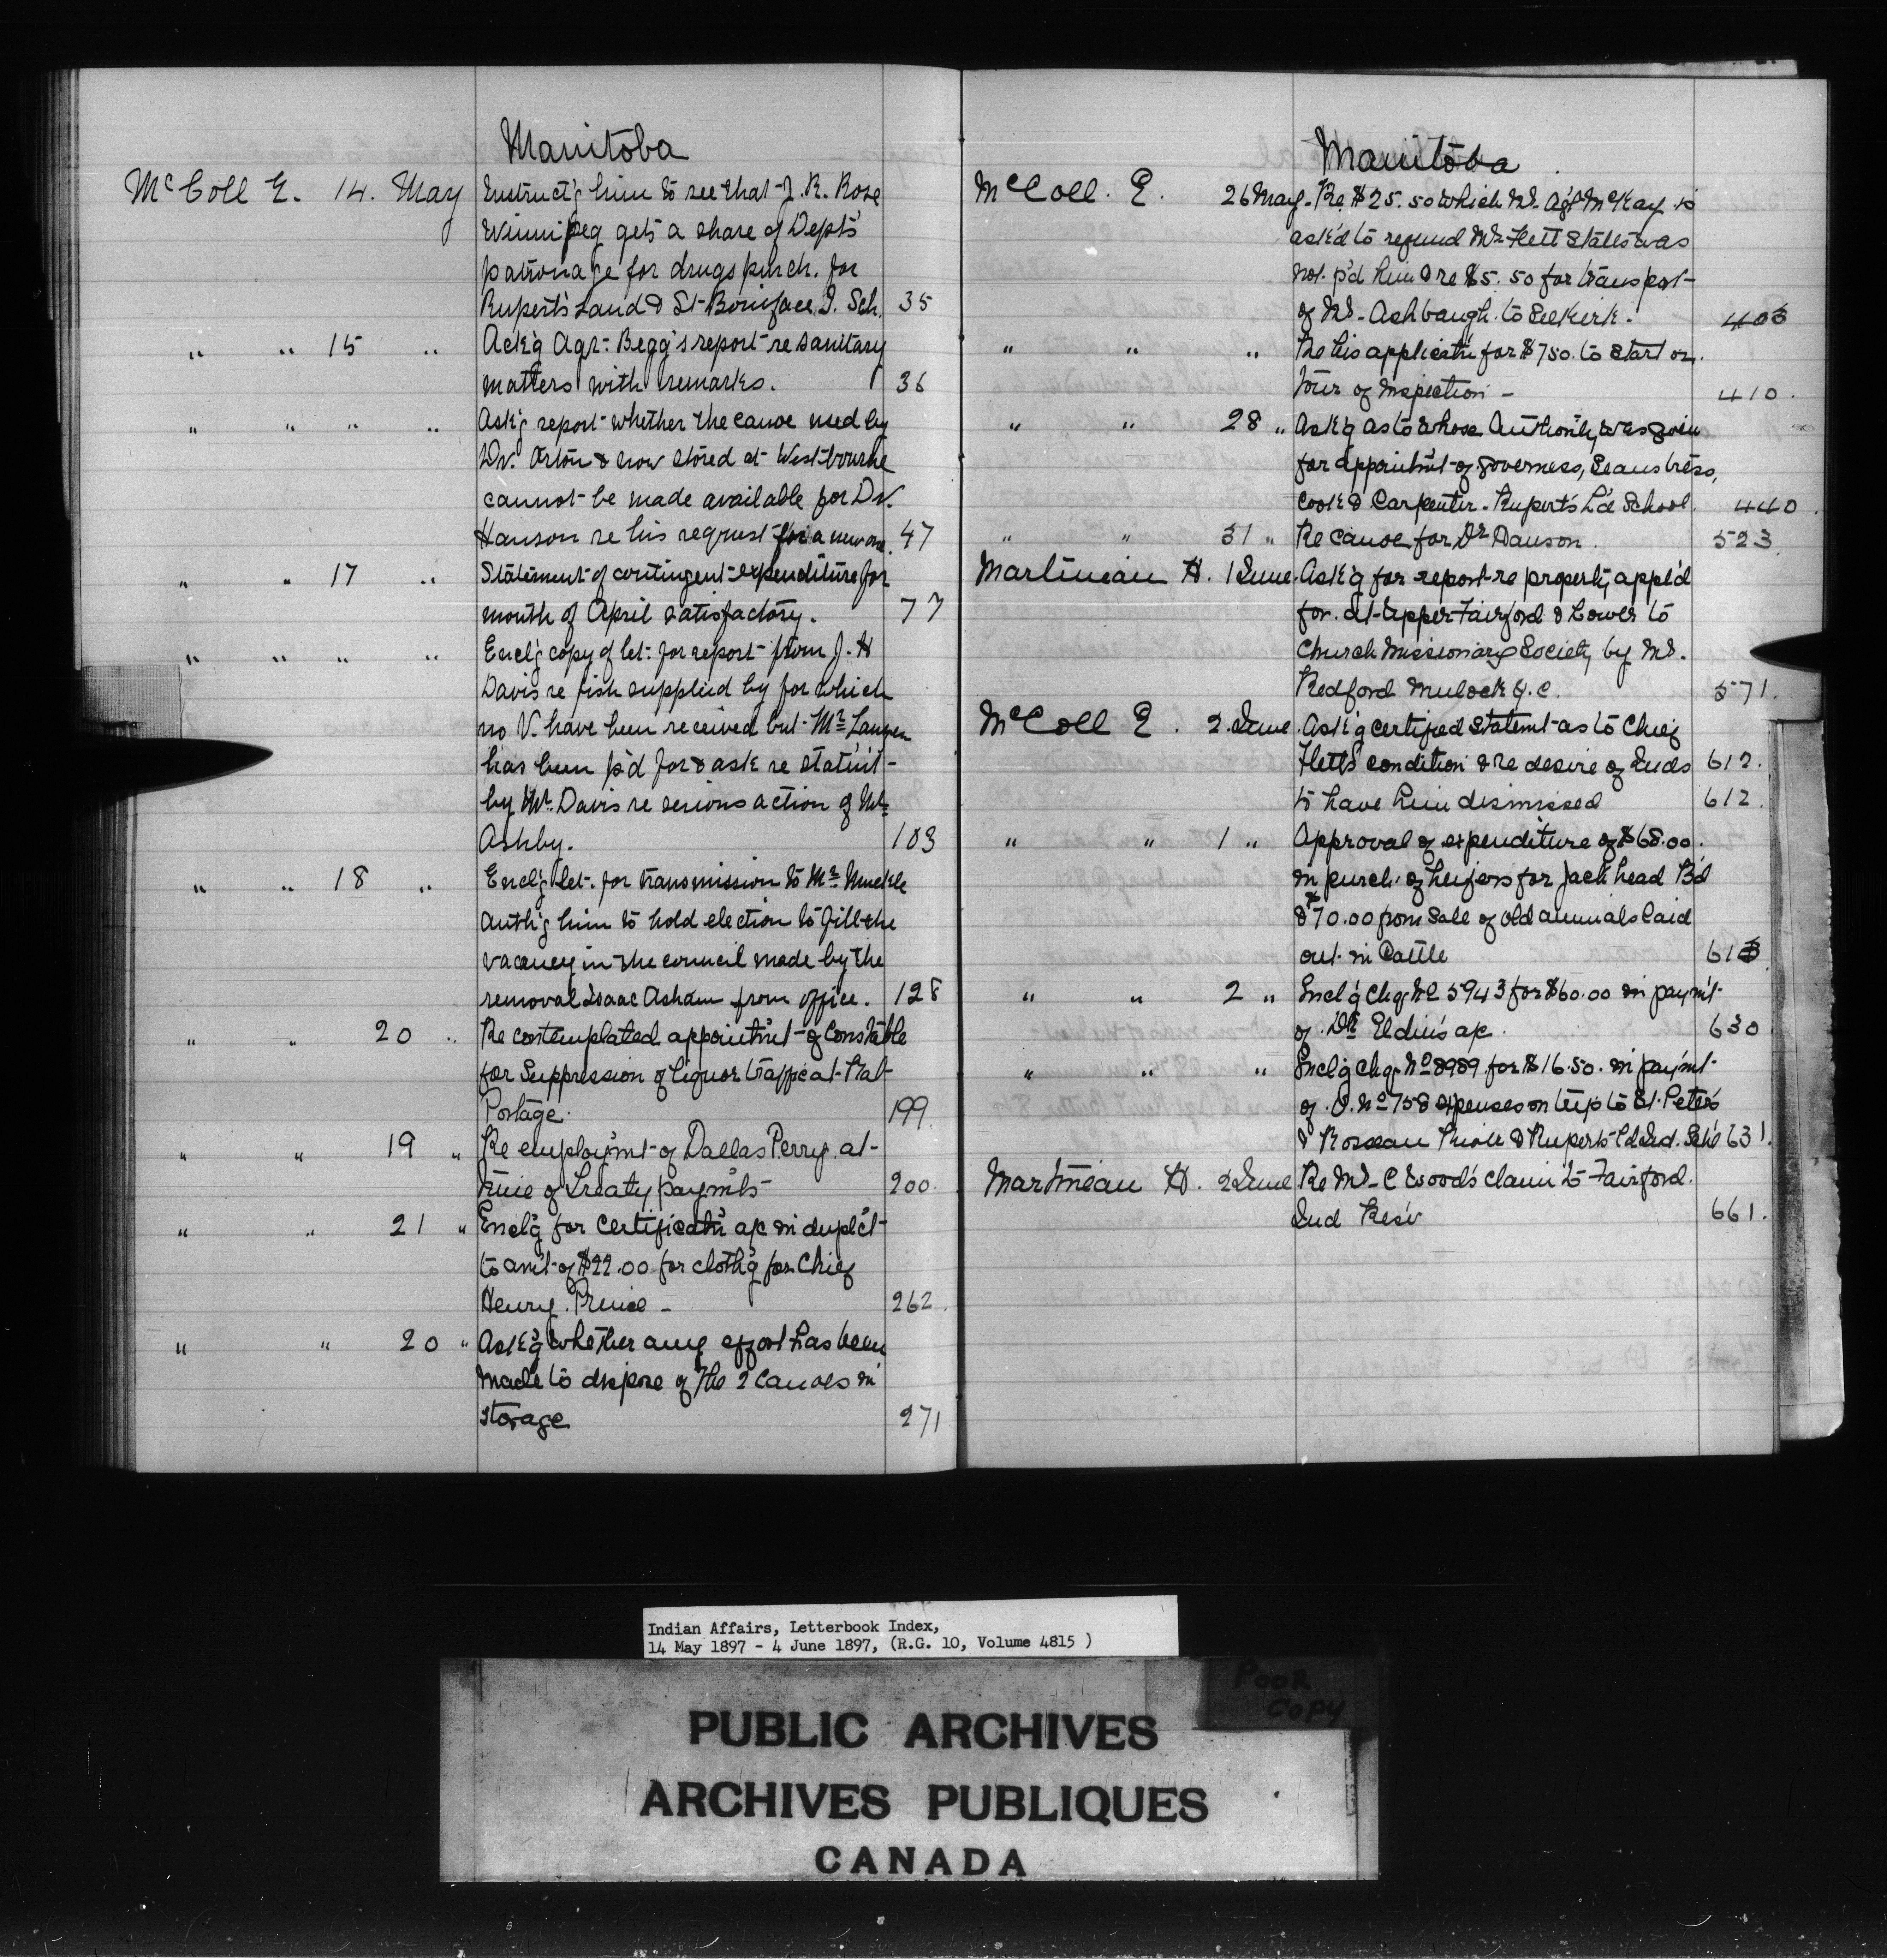 Manitoba
McColl E. 14. May Instruct'g him to see that J. R. Rose
Winnipeg gets a share of Dept's
patronage for drugs purch. for
Rupert's Land & St Boniface I. Sch. 35
" " 15 " Ack'g Agt. Begg's report re sanitary
matters with remarks. 36
" " " " Ask'g report whether the canoe used by
Dr. Orton & now stored at Westbourne
cannot be made available for Dr.
Hanson re his request for a new one. 47
" " 17 " Statement of contingent expenditure for
month of April satisfactory. 77
" " " " Encl'g copy of let. for report from J. H
Davis re fish supplied by for which
no V. have been received but Mr
has been p'd for & ask re statm't
by Mr. Davis re serious action of Mr
Ashby. 103
" " 18 " Encl'g let. for transmission to Mr Muckle
Auth'g him to hold election to fill the
vacancy in the council made by the
removal Isaac Asham from office. 128
" " 20 " Re contemplated appointm't of Constable
for Suppression of liquor traffic at Rat
Portage. 199.
" " 19 " Re employm't of Dallas Perry at
time of Treaty paym'ts 200.
" " 21 " Encl'g for certificat'n a/c in duplc't
to am't of $22.00 for cloth'g for Chief
Henry Prince - 262.
" " 20 " Ask'g whether any effort has been
made to dispose of the 2 canoes in
storage 271
Manitoba
McColl. E. 26 May. Re $25.50 which Mr. Agt McKay is
ask'd to refund Mr Flett states was
not p'd him & re $5.50 for transport
of Mr. Ashbaugh to Selkirk. 403
" " " Re his applicat'n for $750. to start on
tour of inspection - 410.
" " 28 " Ask'g as to whose Authority was given
for appointm't of governess, Seamstress,
Cook & Carpenter. Rupert's L'd School. 440.
" " 31 " Re canoe for Dr Dawson. 523
Martineau H. 1 June. Ask'g for report re property appl'd
for at Upper Fairford & Lower to
Church Missionary Society by Mr.
Redford Mulock Q.C. 571.
McColl E. 2. June. Ask'g certified statem't as to Chief
Flett's condition & re desire of Inds 612.
to have him dismissed 612.
" " 1 " Approval of expenditure of $68.00.
in purch. of heifers for Jack head B'd
& $70.00 from Sale of old animals laid
out in Cattle 613
" " 2 " Encl'g Chq. No 5943 for $60.00 in paym't
of Dr a/c. 630
" " " Encl'g Chq. No 8989 for $16.50. in paym't
of V. No 758 expenses on trip to St. Peter's
& Roseau River & Rupert's L'd Ind. Sch'l 631.
Martineau H. 2 June Re Mr. C Wood's claim to Fairford.
Ind Res'v 661.
Indian Affairs, Letterbook Index,
14 May 1897 - 4 June 1897, (R.G. 10, Volume 4815 )
POOR
COPY
PUBLIC ARCHIVES
ARCHIVES PUBLIQUES
CANADA